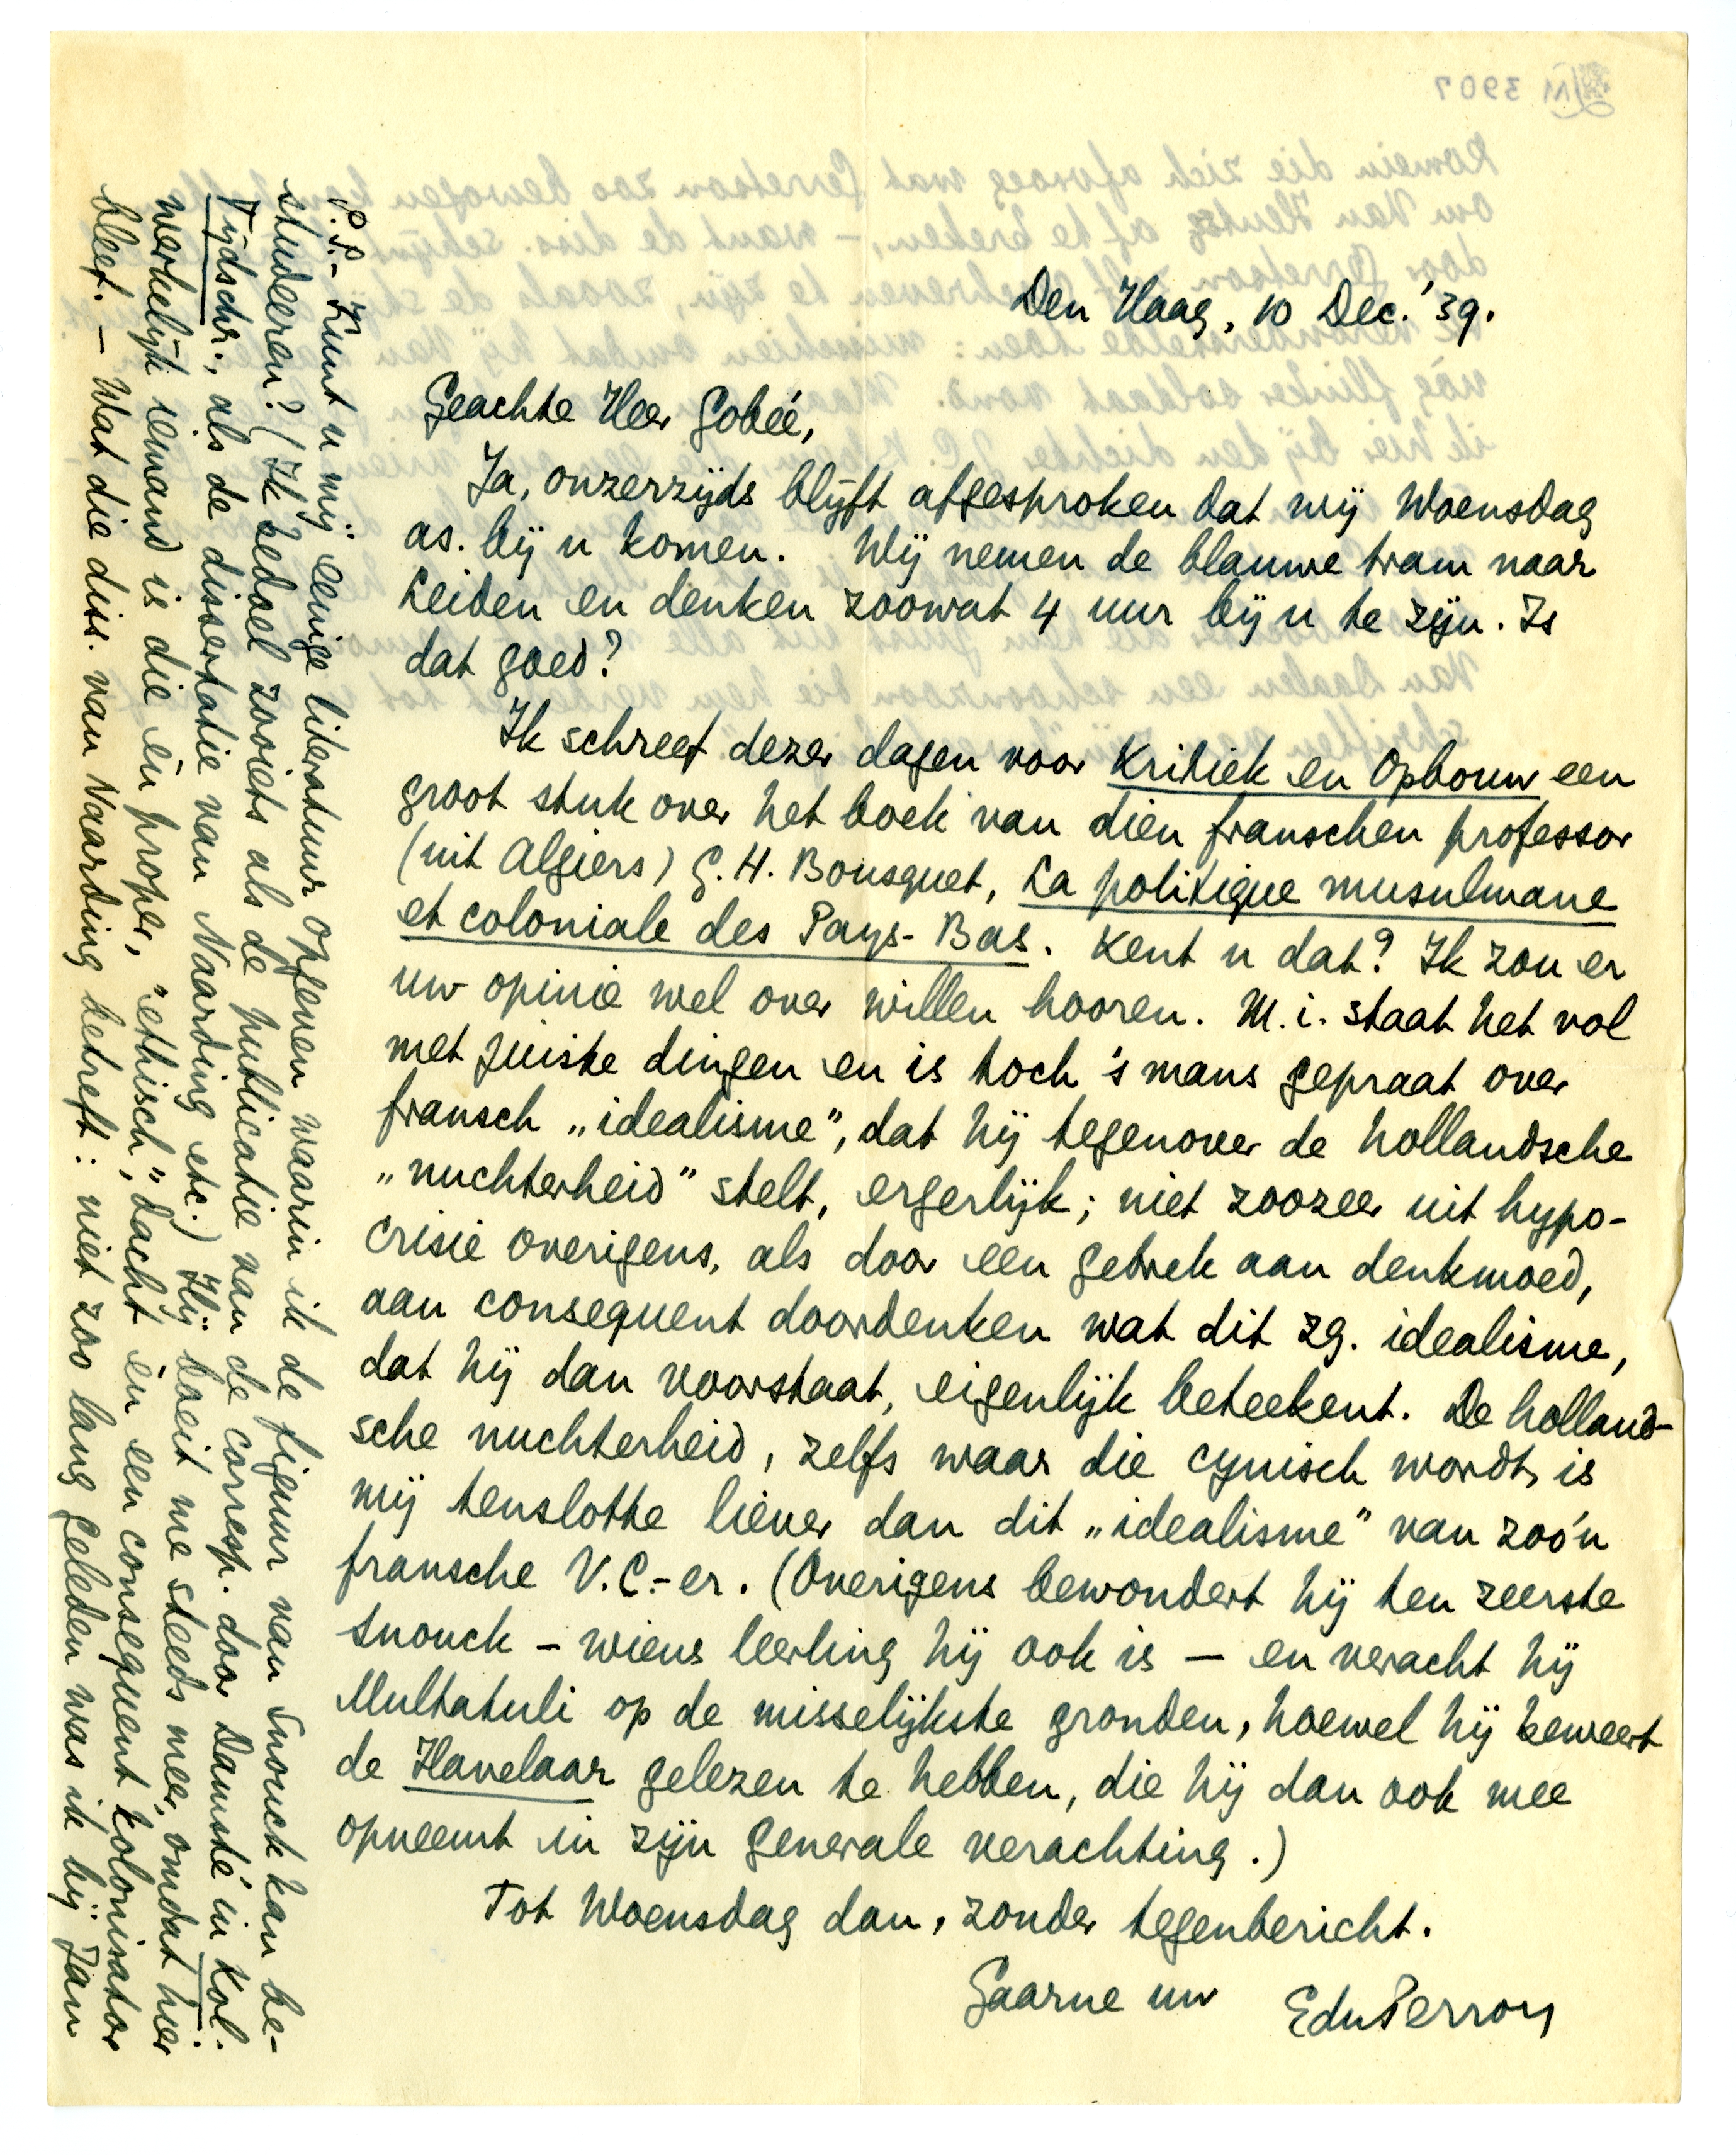 Den Haag, 10 Dec.' 39.
Geachte Heer Gobée,
Ja, onzerzijds blijft afgesproken dat wij Woensdag
as. bij u komen. Wij nemen de blauwe tram naar
Leiden en denken zoowat 4 uur bij u te zijn. Is
dat goed?
Ik schreef dezer dagen voor Kritiek en Opbouw een
groot stuk over het boek van dien franschen professor
(uit Algiers) G. H. Bousquet, La politique musulmane
et coloniale des Pays-Bas. Kent u dat? Ik zou er
uw opinie wel over willen hooren. M. i. staat het vol
met juiste dingen en is toch 's mans gepraat over
fransch „idealisme”, dat hij tegenover de hollandsche
„nuchterheid” stelt, ergerlijk; niet zoozeer uit hypo-
crisie overigens, als door een gebrek aan denkmoed,
aan consequent doordenken wat dit zg. idealisme,
dat hij dan voorstaat, eigenlijk beteekent. De holland-
sche nuchterheid, zelfs waar die cynisch wordt, is
mij tenslotte liever dan dit „idealisme” van zoo'n
fransche V.C.-er. (Overigens bewondert hij ten zeerste
Snouck – wiens leerling hij ook is – en veracht hij
Multatuli op de misselijkste gronden, hoewel hij beweert
de Havelaar gelezen te hebben, die hij dan ook mee
opneemt in zijn generale verachting.)
Tot Woensdag dan, zonder tegenbericht.
Gaarne uw EduPerron
P.S. – Kunt u mij eenige literatuur opgeven waarin ik de figuur van Snouck kan be-
studeeren? (Ik bedoel zooiets als de publicatie van de corresp. door Damsté in Kol.
Tijdschr., als de dissertatie van Naarding etc.) Hij boeit me steeds meer, omdat hier
werkelijk iemand is die èn proper, „ethisch”, dacht èn een consequent kolonisator
bleef. – Wat die diss. van Naarding betreft: niet zoo lang geleden was ik bij Jan
LM 3907